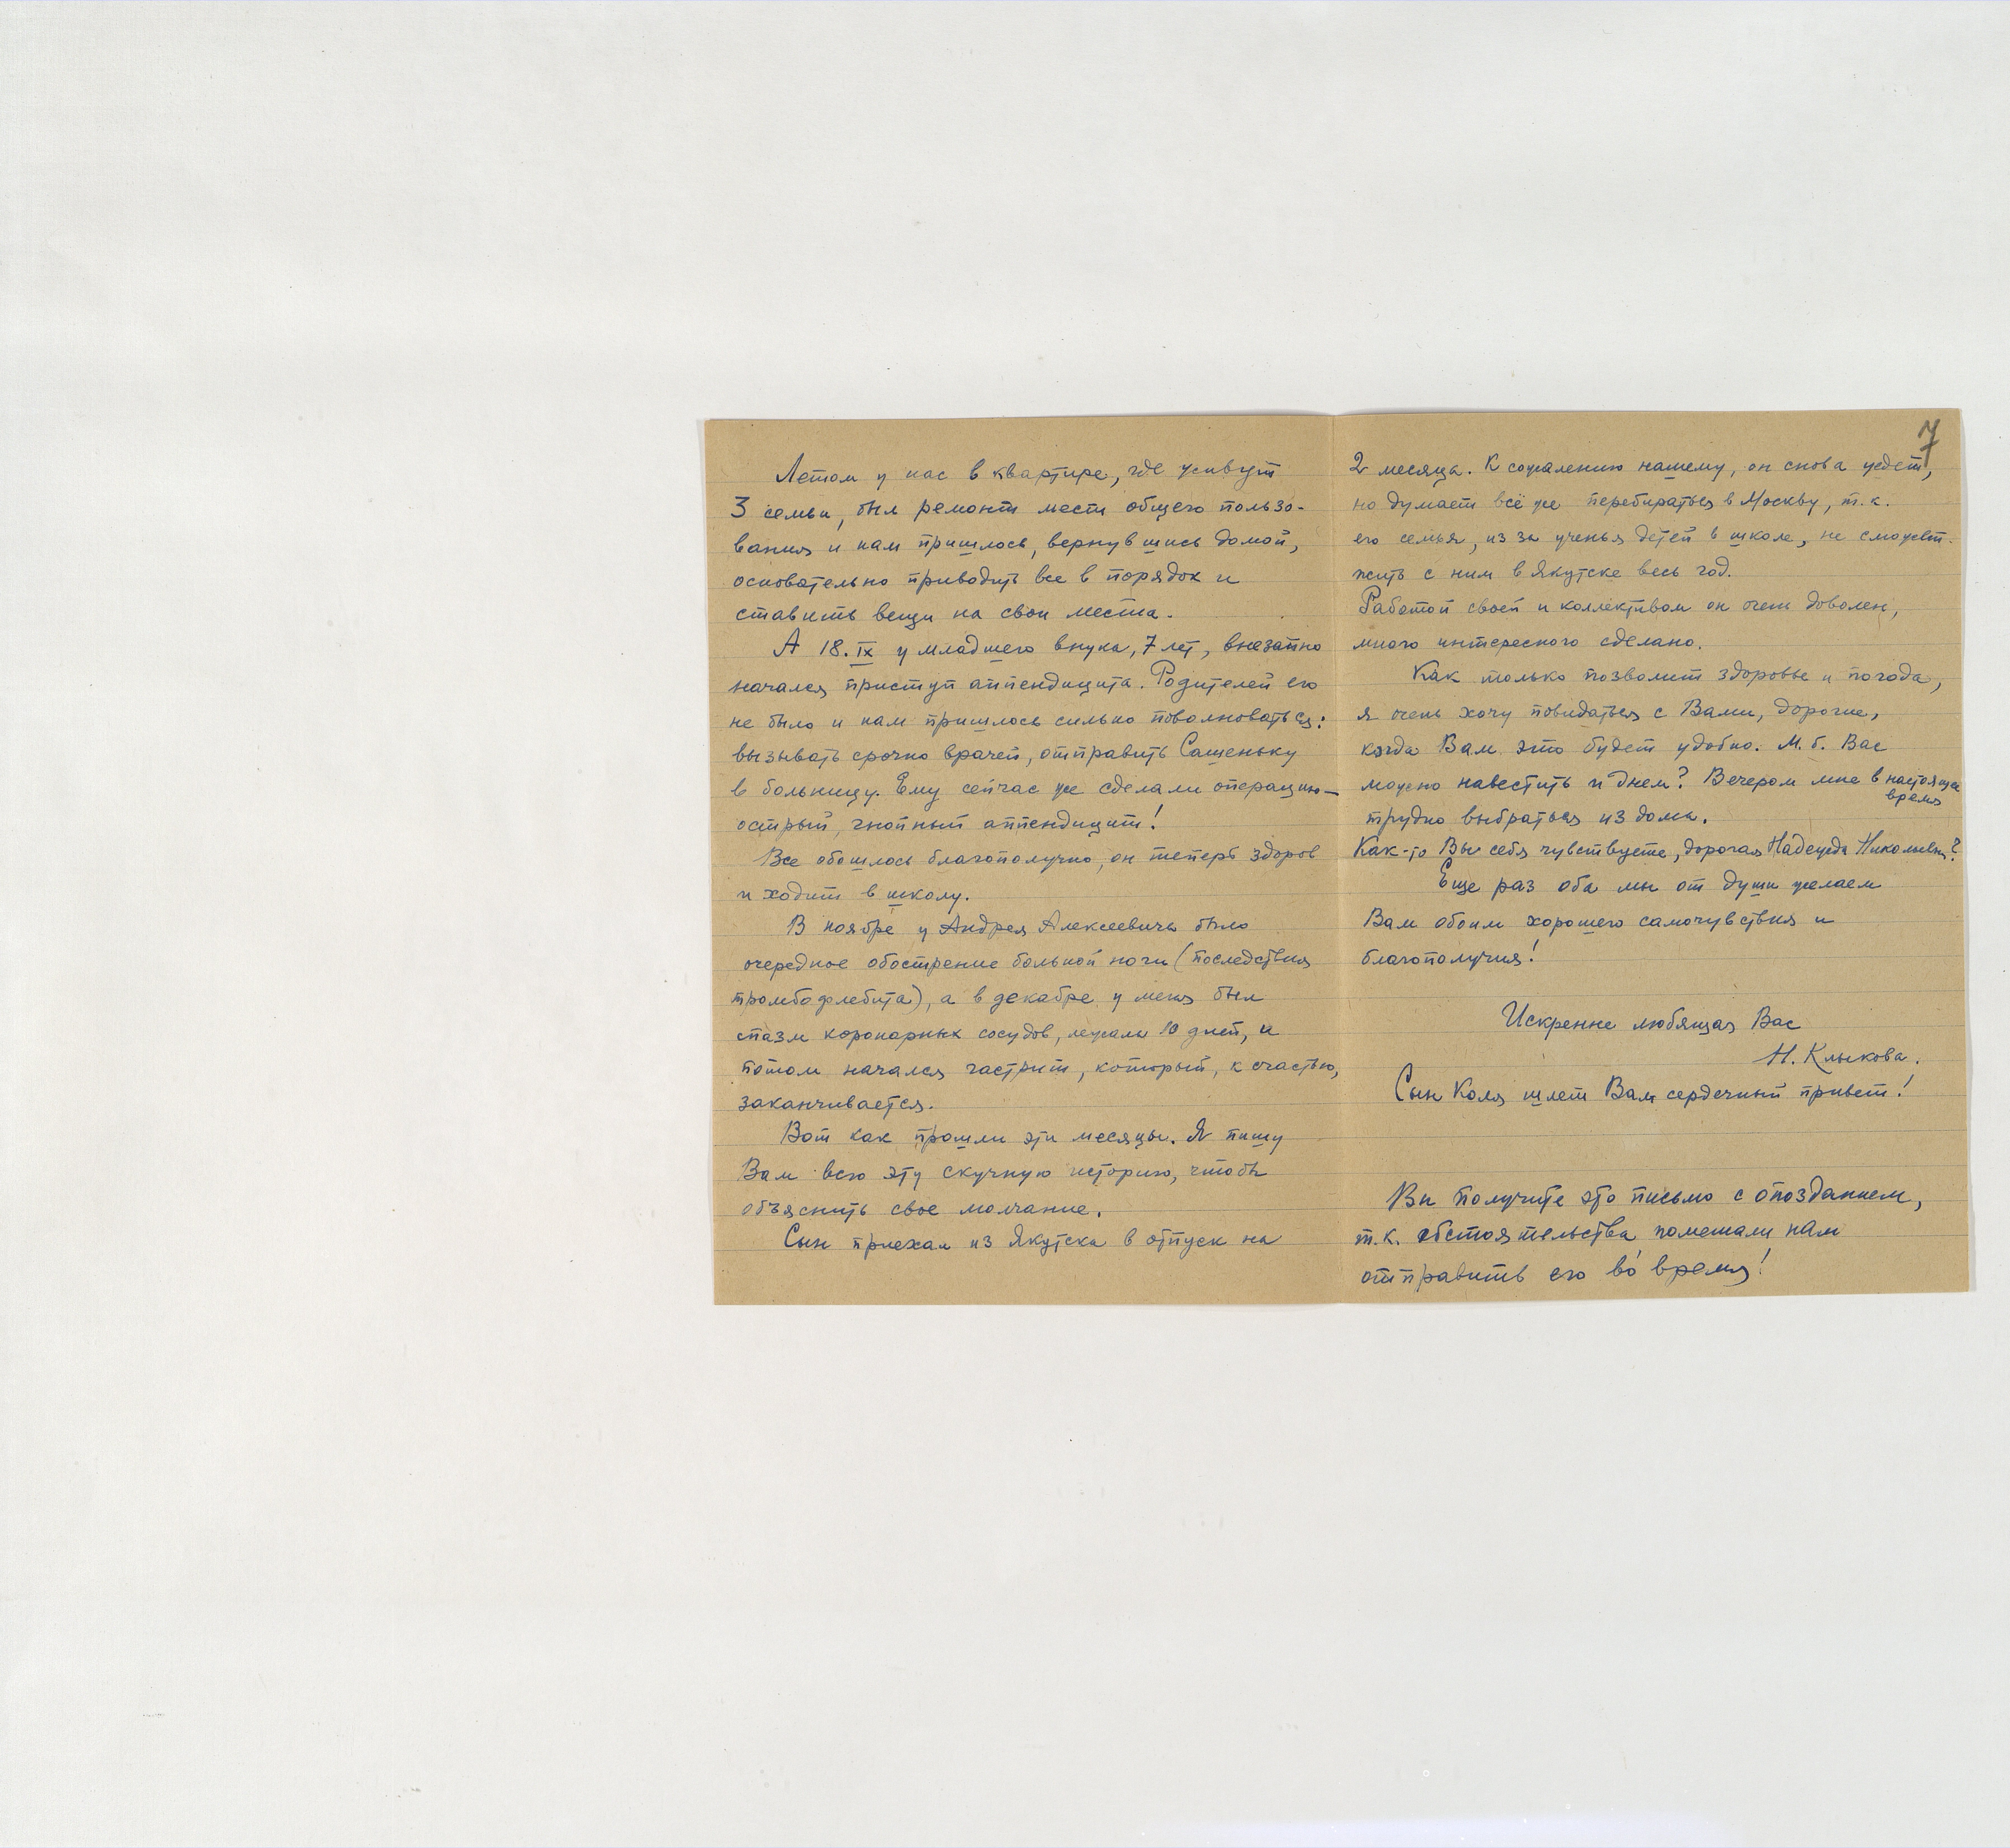 Летом у нас в квартире, где живут
3 семьи, был ремонт мест общего пользо-
вания и нам пришлось, вернувшись домой,
основательно приводить все в порядок и
ставить вещи на свои места.
А 18.IX у младшего внука, 7 лет, внезапно
начался приступ аппендицита. Родителей его
не было и нам пришлось сильно поволноваться:
вызывать срочно врачей, отправить Сашеньку
в больницу. Ему сейчас же сделали операцию—
острый, гнойный аппендицит!
Все обошлось благополучно, он теперь здоров
и ходит в школу.
В ноябре у Андрея Алексеевича было
очередное обострение больной ноги (последствия
тромбофлебита), а в декабре у меня был
спазм коронарных сосудов, лежала 10 дней, и
потом начался гастрит, который, к счастью,
заканчивается.
Вот как прошли эти месяцы. Я пишу
Вам всю эту скучную историю, чтобы
объяснить свое молчание.
Сын приехал из Якутска в отпуск на
7
2 месяца. К сожалению нашему, он снова уедет,
но думает всё же перебираться в Москву, т.к.
его семья, из за ученья детей в школе, не сможет
жить с ним в Якутске весь год.
Работой своей и коллективом он очень доволен,
много интересного сделано.
Как только позволит здоровье и погода,
я очень хочу повидаться с Вами, дорогие,
когда Вам это будет удобно. М.б. Вас
можно навестить и днем? Вечером мне в настоящее
время
трудно выбраться из дома.
Как-то Вы себя чувствуете, дорогая Надежда Николаевна?
Еще раз оба мы от души желаем
Вам обоим хорошего самочувствия и
благополучия!
Искренне любящая Вас
Н. Клыкова.
Сын Коля шлет Вам сердечный привет!
Вы получите это письмо с опозданием,
т.к. обстоятельства помешали нам
отправить его во время!